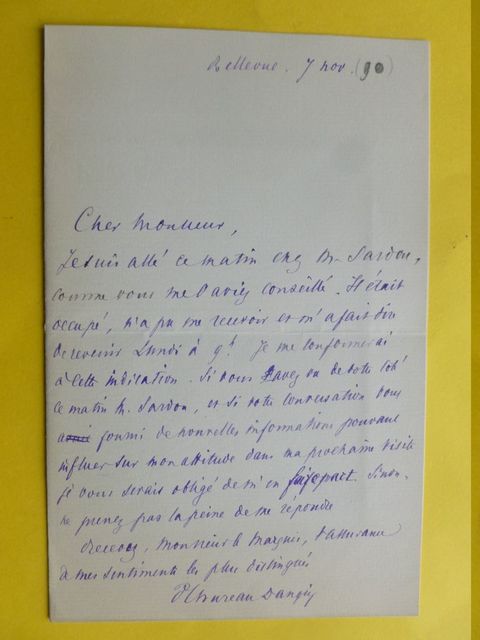 Bellevue. 7 nov. (90)
Cher Monsieur,
Je suis allé ce matin chez M. Sardou,
comme vous me l'aviez conseillé. Il était
occupé, n'a pu me recevoir et m'a fait dire
de revenir Lundi à 9h. Je me conformerai
à cette indication. Si vous avez vu de votre côté
ce matin M. Sardou, et si votre conversation vous
a fourni de nouvelles informations pouvant
influer sur mon attitude dans ma prochaine visite
je vous serais obligé de m'en faire part. Sinon,
ne prenez pas la peine de me répondre
Recevez, Monsieur le Marquis, l'assurance
de mes sentiments les plus distingués
Thureau Dangin